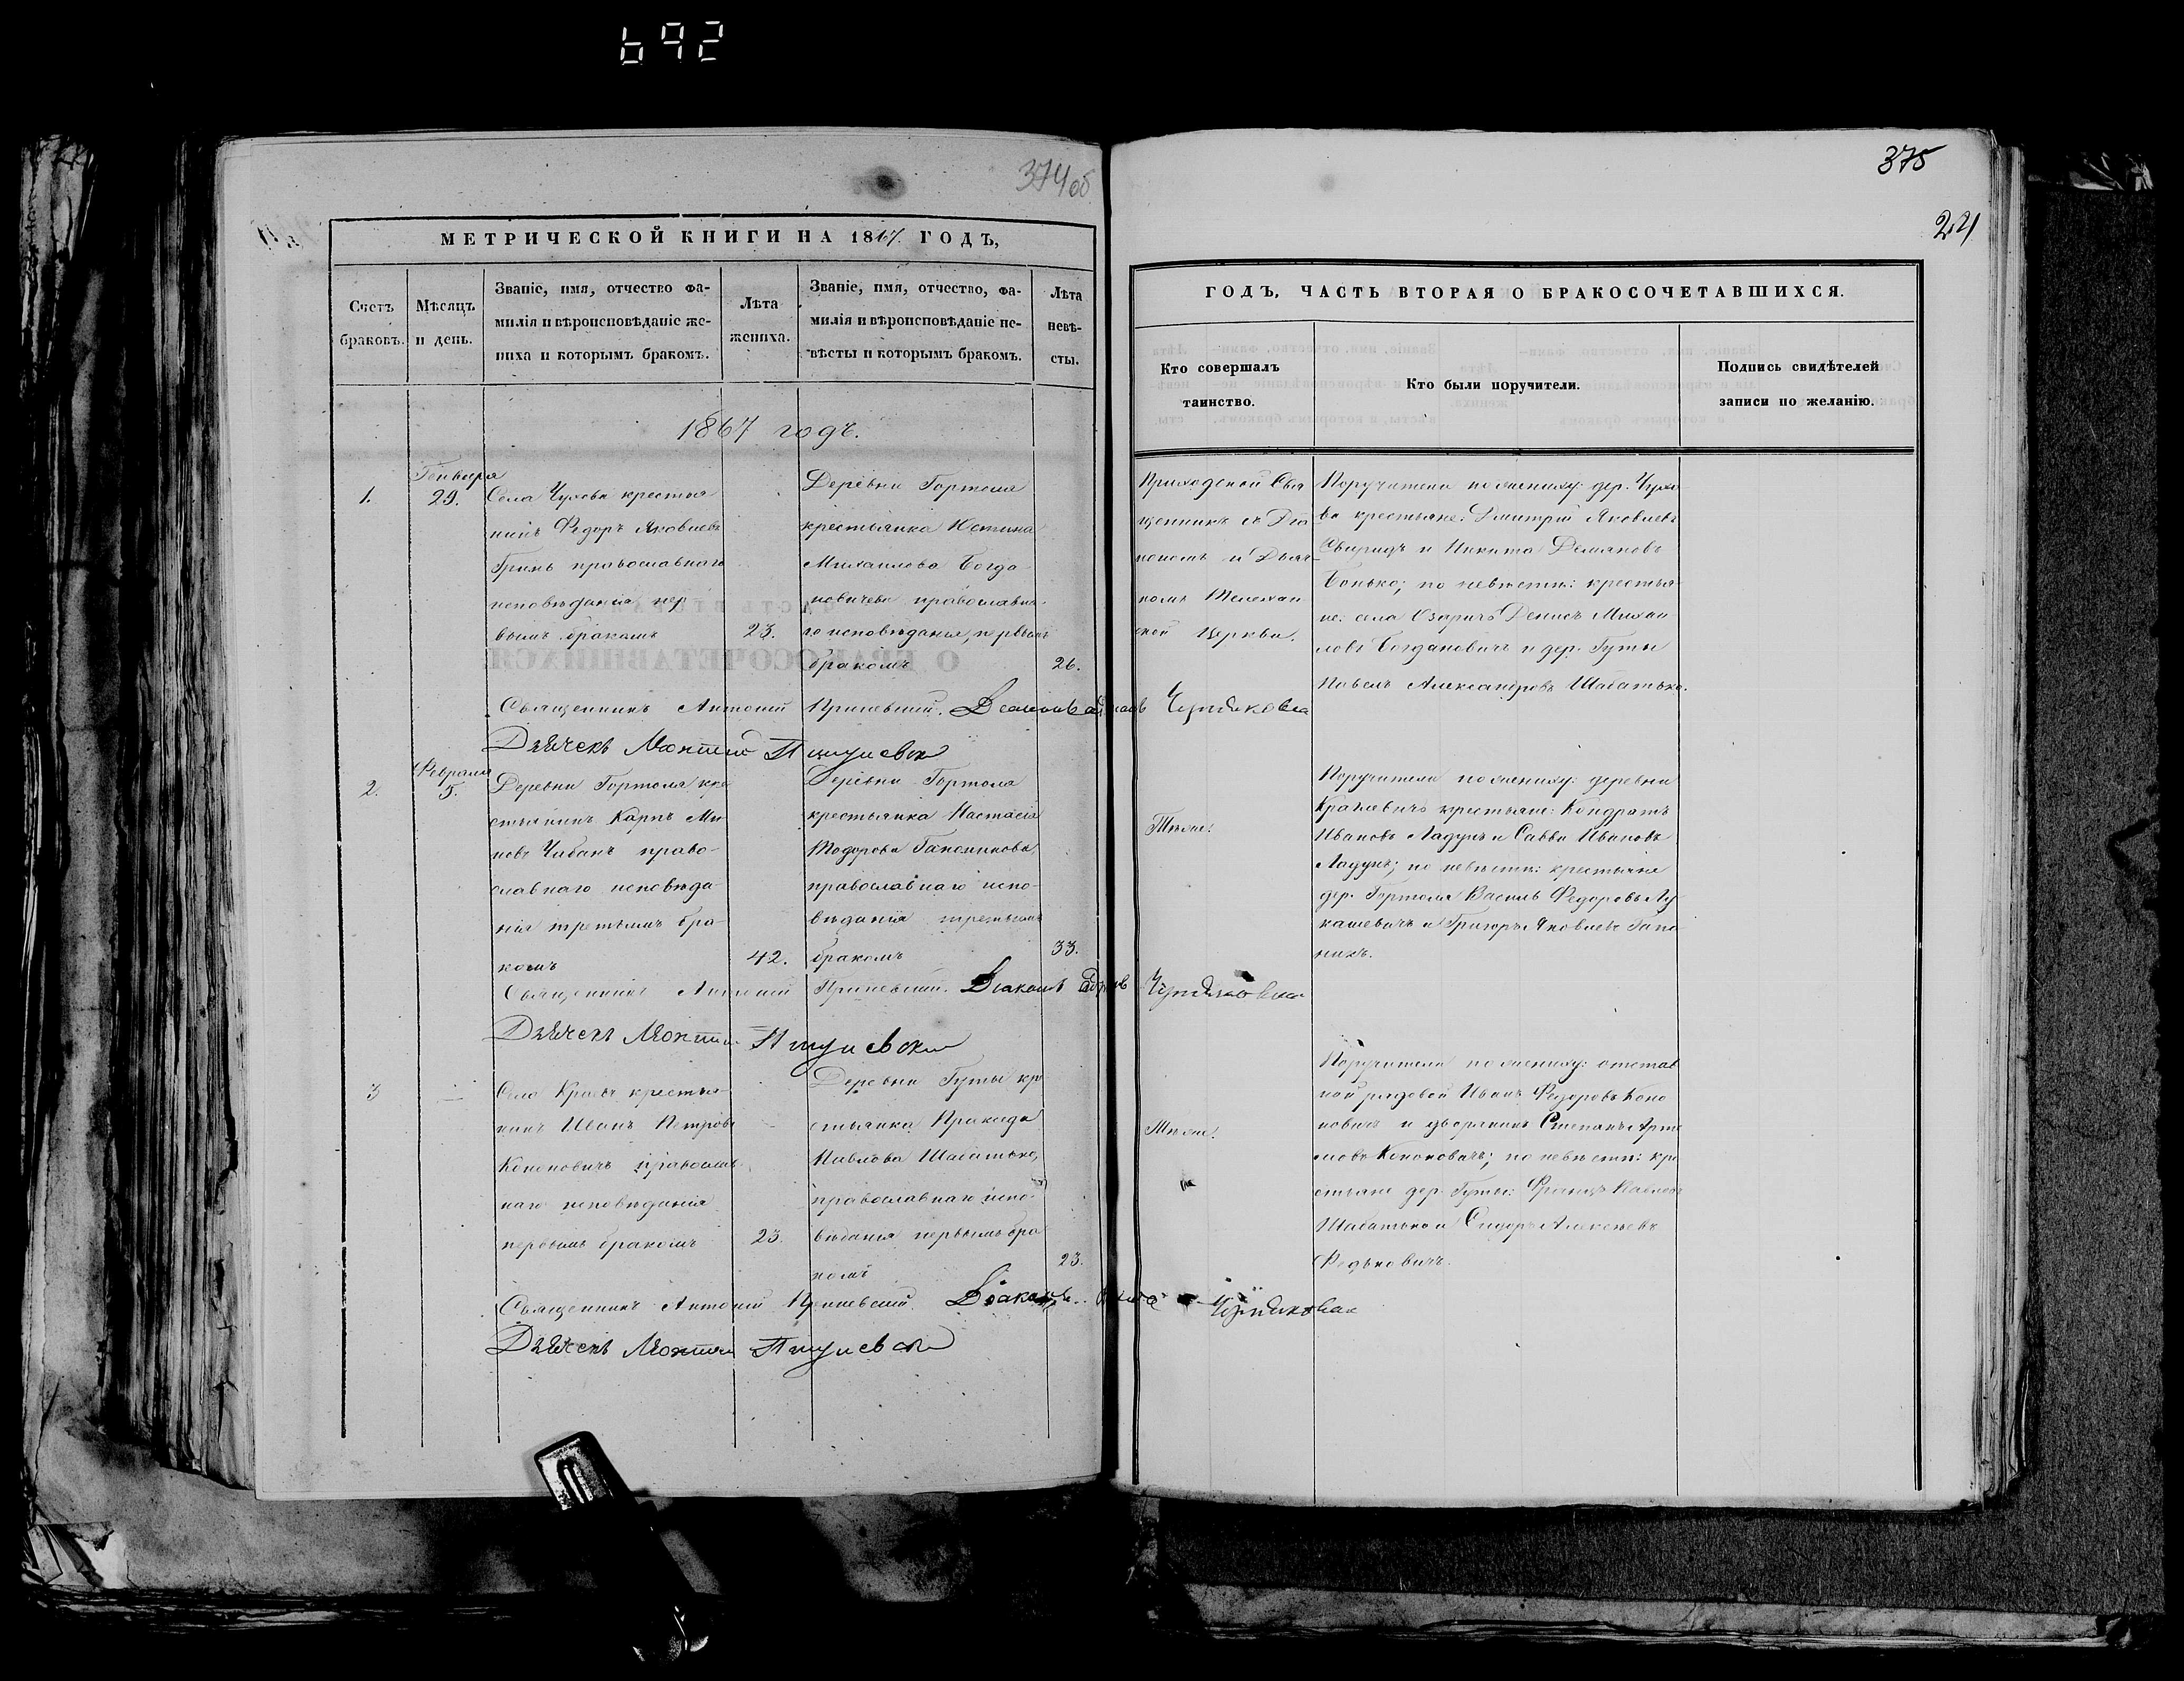 692
374об
МЕТРИЧЕСКОЙ КНИГИ НА 1867. ГОДЪ,
Счетъ
браковъ.
Мѣсяцъ
и день.
Званіе, имя, отчество фа-
милія и вѣроисповѣданіе же-
ниха и которымъ бракомъ.
Лѣта
жениха.
Званіе, имя, отчество, фа-
милія и вѣроисповѣданіе не-
вѣсты и которымъ бракомъ.
Лѣта
невѣ-
сты.
1867 годъ.
1.
Генваря
29.
Села Чухова крестья
нинъ Федоръ Яковлевъ
Гринь православнаго
исповѣданія пер
вымъ бракомъ
23.
Деревни Гортоля
крестьянка Устина
Михаилова Богда
новичева православна-
го исповѣданія, первымъ
бракомъ
26.
Священникъ Антоній
Дьячекъ
2.
Февраля
5.
Деревни Гортоля кре
стьянинъ Карпъ Ми
новъ Чабанъ право-
славнаго исповѣда-
нія третьимъ бра-
комъ
42.
Деревни Гортоля
крестьянка Настасія
Тодорова
православнаго испо-
вѣданія третьимъ
бракомъ
33.
Священникъ Антоній
Дьячекъ
3
—
Села Краев крестья
нинъ Иванъ Петровъ
Кононовичъ православ-
наго исповѣданія
первымъ бракомъ
23.
Деревни Гуты кре
стьянка
Павлова Шабатько,
православнаго испо-
вѣданія первымъ бра
комъ
23.
Священникъ Антоній
Дьячекъ
375
24
ГОДЪ, ЧАСТЬ ВТОРАЯ О БРАКОСОЧЕТАВШИХСЯ.
Кто совершалъ
таинство.
Кто были поручители.
Подпись свидѣтелей
записи по желанію.
Приходской Свя
щенникъ съ Діа
кономъ и Дьяч-
комъ Телехан
ской Церкви.
Поручители по жениху: дер. Чухо
ва крестьяне: Дмитрій Яковлевъ
Свиридъ и Никита Демяновъ
Бонько; по невѣстѣ: крестья
не: села Озаричъ Денисъ Михаи
ловъ Богдановичъ и дер. Гуты
Павелъ Александровъ Шабатько.
Тѣже.
Поручители по жениху: деревни
Краглевичъ крестьяне: Кондратъ
Ивановъ Ладунъ и Савва Ивановъ
Ладунъ; по невѣстѣ: крестьяне
дер. Гортоля Василь Федоровъ Лу
кашевичъ и Григоръ Яковлевъ Гапо
никъ.
Тѣже.
Поручители по жениху: отстав
ной рядовой Иванъ Федоровъ Коно
новичъ и дворянинъ Степанъ Арте
мовъ Кононовичъ; по невѣстѣ: кре
стьяне дер. Гуты: Францъ Павловъ
Шабатько и Сидоръ Алексѣевъ
Федьковичъ.